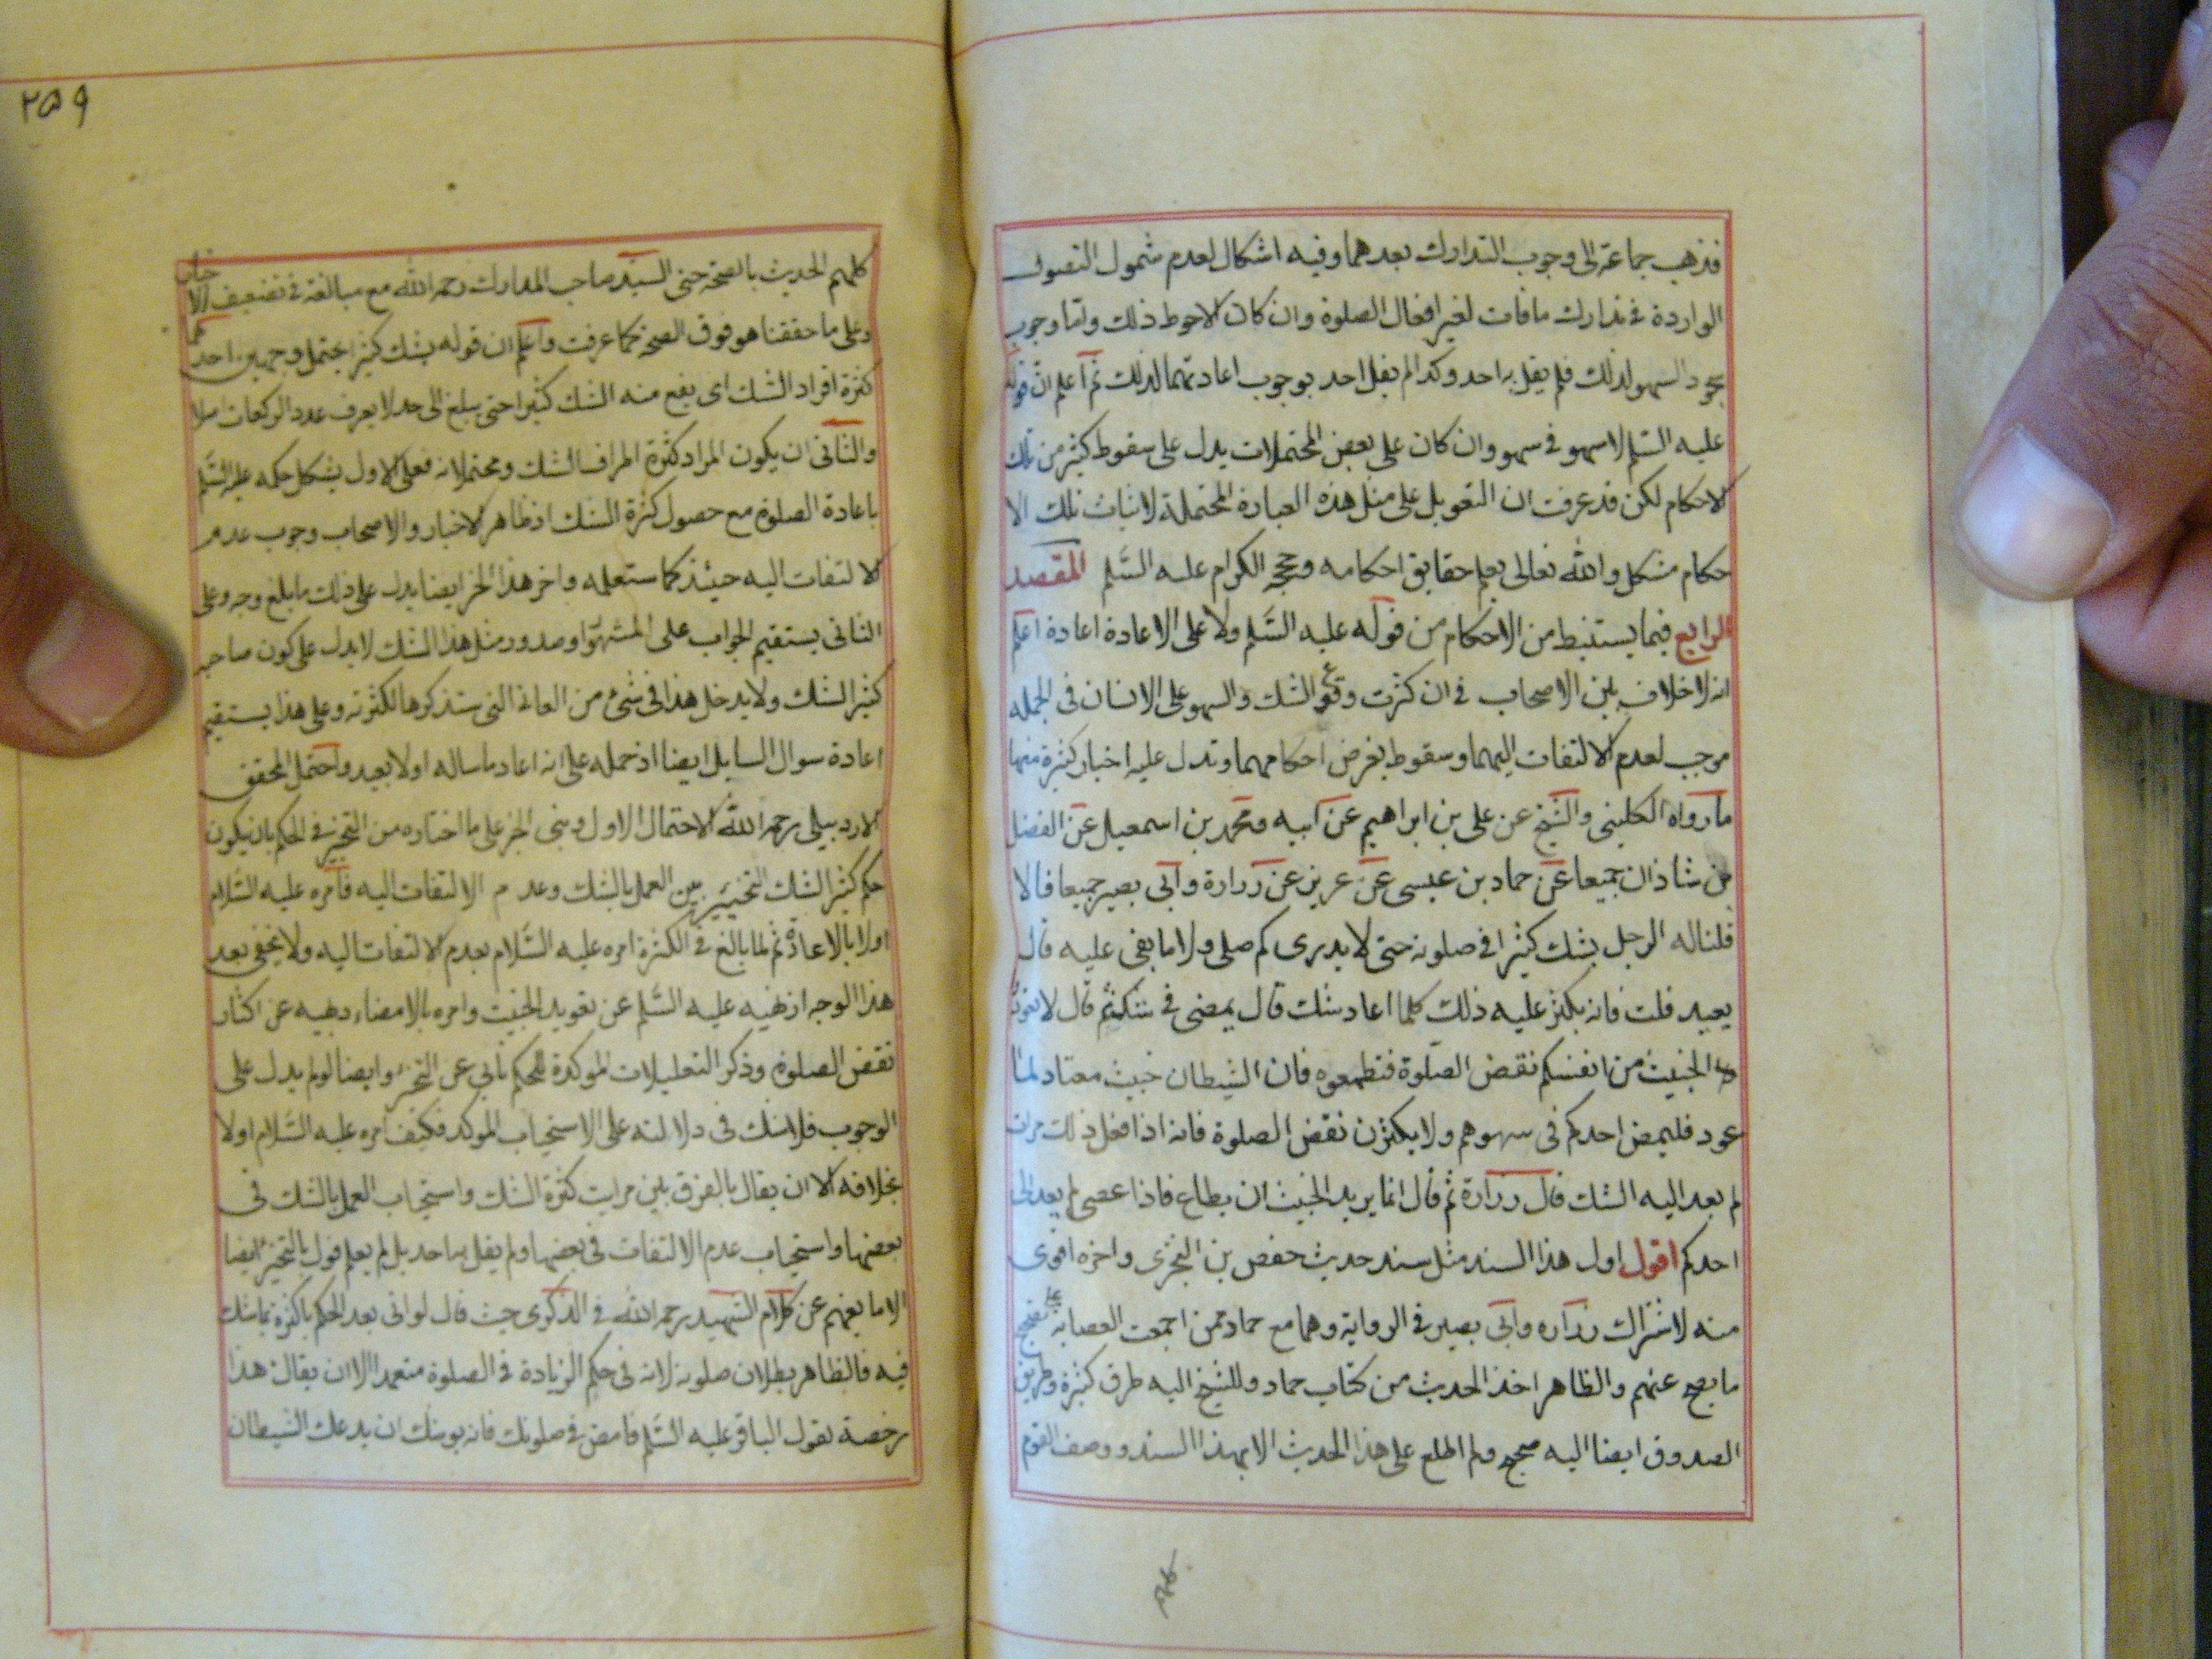 فذهب جماعة الى وجوب التدارك بعدهما وفيه اشكال لعدم شمول النصوص
الواردة في تدارك ما فات لغير افعال الصلوة وان كان الاحوط ذلك واما وجوب
سجود السهو لذلك فلم يقل به احد وكذا لم يقل احد بوجوب اعادتهما لذلك ثم اعلم ان قوله
عليه السلم لا سهو في سهو وان كان على بعض المحتملات يدل على سقوط كثير من تلك
الاحكام لكن قد عرفت ان التعويل على مثل هذه العبارة المحتملة لاثبات تلك الا
حكام مشكل والله تعالى يعلم حقايق احكامه وحججه الكرام عليه السلم المقصد
الرابع فيما يستنبط من الاحكام من قوله عليه السلم ولا على الاعادة اعادة اعلم
انه لا خلاف بين الاصحاب في ان كثرت وقوع الشك والسهو على الانسان في الجمله
موجب لعدم الالتفات اليهما وسقوط بعض احكامهما وتدل عليه اخبار كثيرة منها
ما رواه الكليني والشيخ عن علي بن ابراهيم عن ابيه ومحمد بن اسمعيل عن الفضل
بن شاذان جميعا عن حماد بن عيسى عن حريز عن زرارة وابي بصير جميعا قالا
قلنا له الرجل يشك كثيرا في صلوته حتى لا يدرى كم صلى ولا ما بقى عليه قال
يعيد قلت فانه يكثر عليه ذلك كلما اعاد شك قال يمضى في شكه ثم قال لا تعود
وا الخبيث من انفسكم نقض الصلوة فتطمعوه فان الشيطان خبيث معتاد لما
عود فليمض احدكم في سهوهم ولا يكثرن نقض الصلوة فانه اذا فعل ذلك مرات
لم يعد اليه الشك قال زرارة ثم قال انما يريد الخبيث ان يطاع فاذا عصى لم يعد الى
احدكم اقول اول هذا السند مثل سند حديث حفص بن البختري واخره اقوى
منه لاشتراك زراره وابي بصير في الرواية وهما مع حماد ممن اجمعت العصابه على تصحيح
ما يصح عنهم والظاهر اخذ الحديث من كتاب حماد وللشيخ اليه طرق كثيرة وطريق
الصدوق ايضا اليه صحيح ولم اطلع على هذا الحديث الا بهذا السند ووصف القوم
۲۵۹
كلهم الحديث بالصحة حتى السيد صاحب المدارك رحمه الله مع مبالغته في تضعيف الا خبار
وعلى ما حققنا هو فوق الصحة كما عرفت واعلم ان قوله يشك كثيرا يحتمل وجهين احدهما
كثرة افراد الشك اى يقع منه الشك كثيرا حتى يبلغ الى حد لا يعرف عدد الركعات اصلا
والثاني ان يكون المراد كثرة اطراف الشك ومحتملاته فعلى الاول يشكل حكمه عليه السلم
باعادة الصلوة مع حصول كثرة الشك اذ ظاهر الاخبار والاصحاب وجوب عدم
الالتفات اليه حينئذ كما ستعلمه واخر هذا الخبر ايضا يدل على ذلك ما بلغ وجه وعلى
الثاني يستقيم الجواب على المشهور وصدور مثل هذا الشك لا يدل على كون صاحبه
كثير الشك ولا يدخل هذا في شئ من المعاني التي ستذكرها لكثرته وعلى هذا يستقيم
اعادة سوال السايل ايضا اذ حمله على انه اعاد ما ساله اولا بعيد واحتمل المحقق
الاردبيلي رحمه الله الاحتمال الاول وبنى الخبر على ما اختاره من التخيير في الحكم بان يكون
حكم كثير الشك التخيير بين العمل بالشك وعدم الالتفات اليه فامره عليه السلام
اولا بالاعادة ثم لما بالغ في الكثرة امره عليه السلام بعدم الالتفات اليه ولا يخفى بعد
هذا الوجه اذ نهيه عليه السلم عن تعويد الخبيث وامره بالامضاء ونهيه عن اكثار
نقض الصلوة وذكر التعليلات الموكدة للحكم تأبى عن التخير وايضا لو لم يدل على
الوجوب فلا شك في دلالته على الاستحباب الموكد فكيف امره عليه السلام اولا
بخلافه الا ان يقال بالفرق بين مراتب كثرة الشك واستحباب العمل بالشك في
بعضها واستحباب عدم الالتفات في بعضها ولم يقل به احد بل لم يعلم قول بالتخيير ايضا
الا ما يفهم عن كلام الشهيد رحمه الله في الذكرى حيث قال لو اتى بعد الحكم بالكثرة بما شك
فيه فالظاهر بطلان صلوته لانه في حكم الزيادة في الصلوة متعمدا الا ان يقال هذا
رخصة لقول الباقر عليه السلم فامض في صلوتك فانه يوشك ان يدعك الشيطان